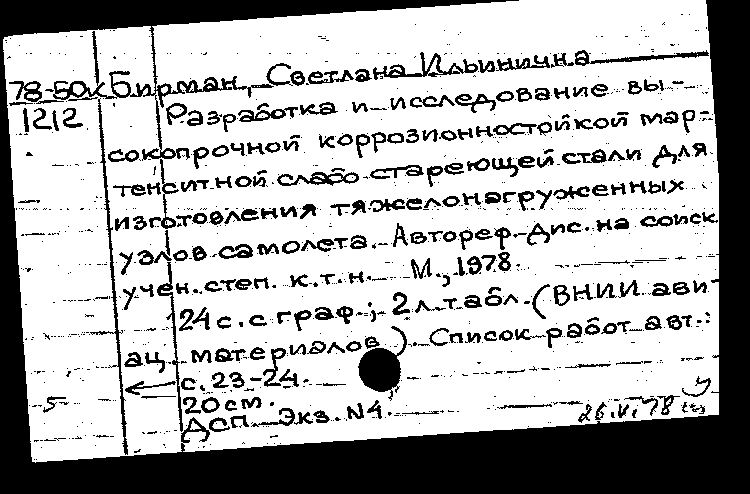 78-50к Бирман, Светлана Ильинична
1212 Разработка и исследование вы-
сокопрочной коррозионностойкой мар-
тенситной слабо стареющей стали для
изготовления тяжелонагруженных
узлов самолета. Автореф. дис. на соиск.
учен. степ. к.т.н. М., 1978.
24 с. с граф.; 2 л. табл. (ВНИИ ави-
ац. материалов). Список работ авт.:
с. 23-24.
5 20 см.
ДСП. Экз. N4. 26.V.78